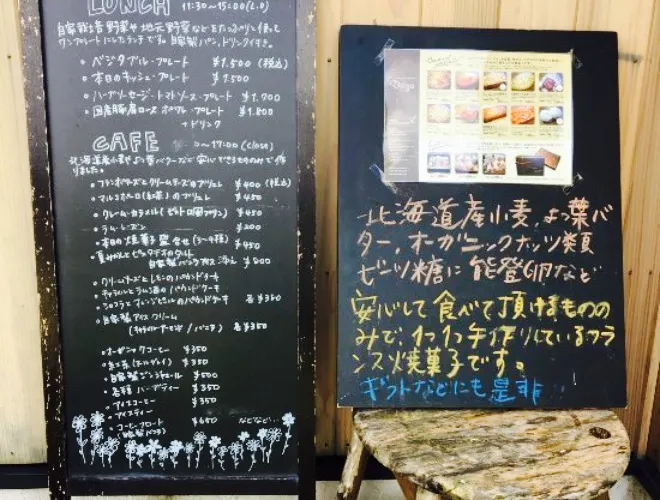 LUNCH 11:30〜15:00(L.O)
自家栽培野菜や地元野菜などをたっぷり使って
ワンプレートにしたランチです。自家製パン、ドリンク付き。
・ベジタブル・プレート ¥1,500 (税込)
・本日のキッシュ・プレート ¥1,500
・ハーブソーセージ・トマトソース・プレート ¥1,700
・国産豚肩ロース ・プレート ¥1,800
+ドリンク
CAFE 〜17:00 (close)
北海道産小麦、よつ葉バターなど安心できるもののみで作
りました。
・フランボワーズとクリームチーズのブリュレ ¥400 (税込)
・マルコポーロ(紅茶)のブリュレ ¥450
・クレーム・カラメル( プリン) ¥450
・ラム・レーズン ¥200
・本日の焼菓子盛合せ(3〜4種) ¥450
・夏みかんとピスタチオのタルト
自家製 アイス 添え ¥500
・クリームチーズとレモンのパウンドケーキ
・ とラム酒のパウンドケーキ
・ショコラとフレンジピールのパウンドケーキ 各¥350
・自家製アイスクリーム
( / バニラ) 各¥350
・オーガニックコーヒー ¥350
・紅茶( ) ¥350
・自家製ジンジャエール ¥500
・各種ハーブティー ¥350
・アイスコーヒー ¥350
・アイスティー ¥350
・コーヒーフロート ¥650 などなど...
Dolya
北海道産小麦、よつ葉バ
ター、オーガニックナッツ類
ビーツ糖に能登卵など
安心して食べて頂けるものの
みで、1つ1つ手作りしているフラ
ンス焼菓子です。
ギフトなどにも是非